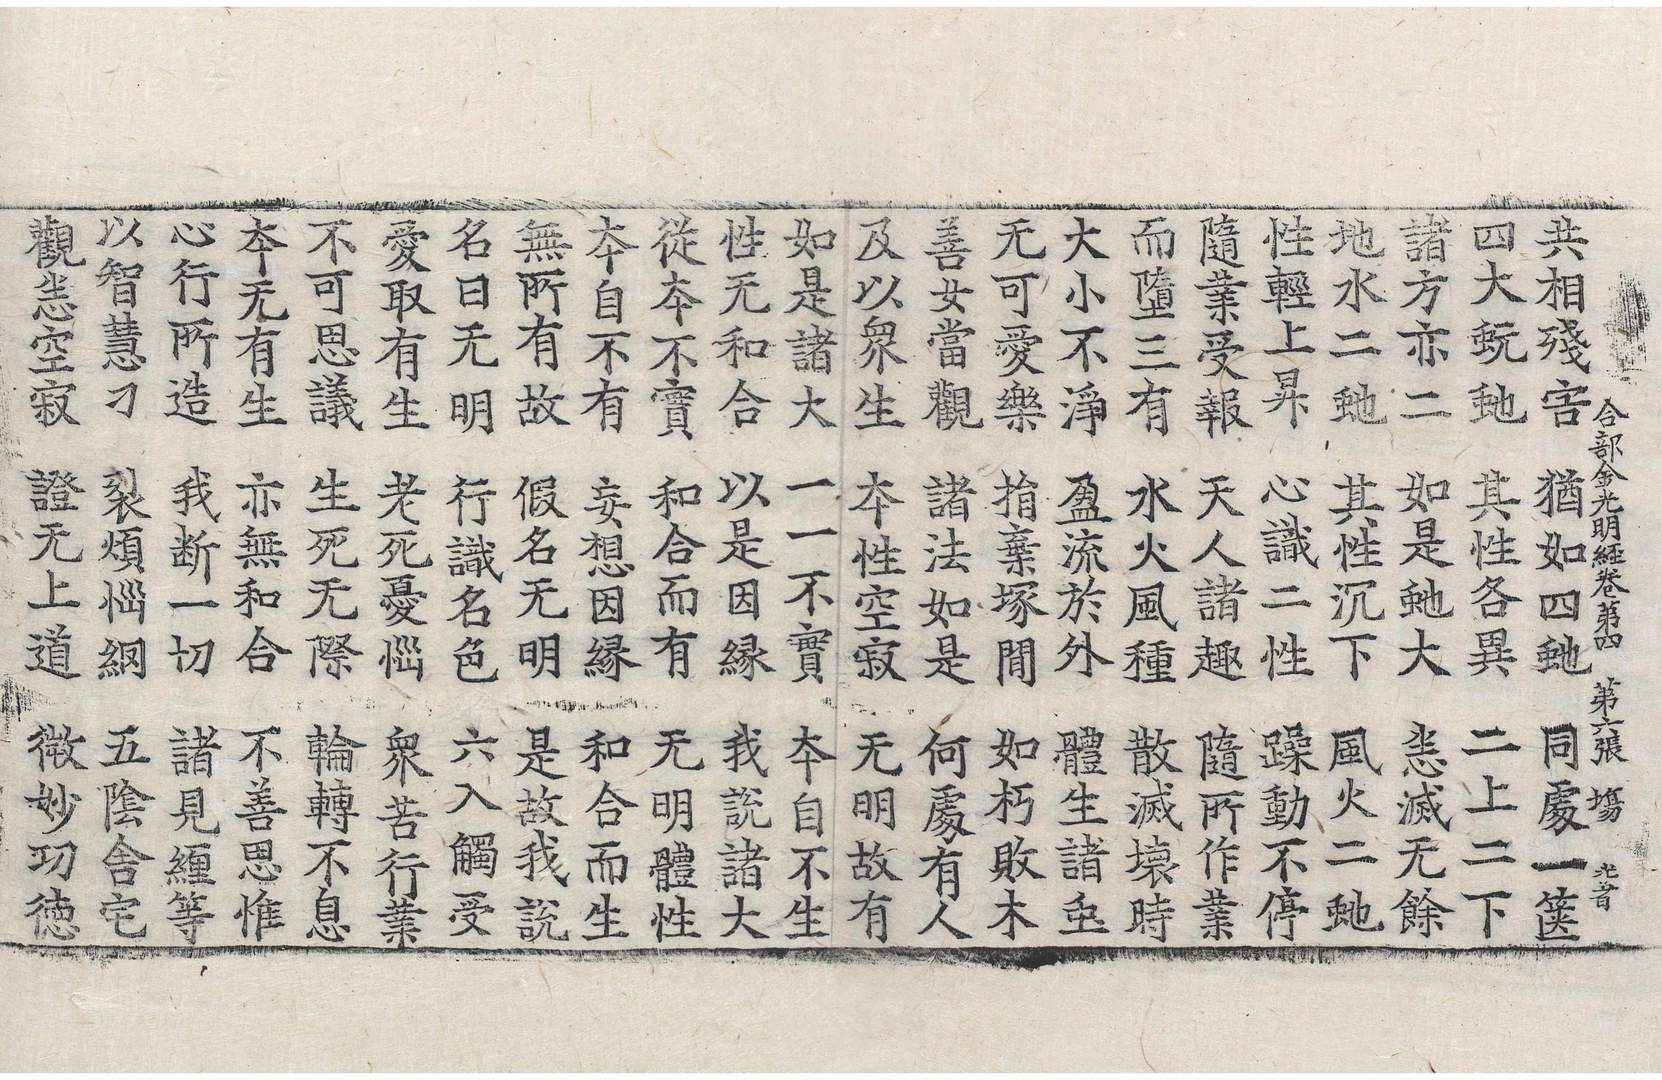 合部金光明經卷苐四 苐六張 塲
共相殘害 猶如四虵 同處一篋
四大蚖虵 其性各異 二上二下
諸方亦二 如是虵大 悉滅无餘
地水二虵 其性沉下 風火二虵
性輕上昇 心識二性 躁動不停
隨業受報 天人諸趣 隨所作業
而墮三有 水火風種 散滅壞時
大小不淨 盈流於外 體生諸虫
无可愛樂 捐棄塚間 如朽敗木
善女當觀 諸法如是 何處有人
及以衆生 本性空寂 无明故有
如是諸大 一一不實 本自不生
性无和合 以是因縁 我説諸大
從本不實 和合而有 无明體性
本自不有 妄想因縁 和合而生
無所有故 假名无明 是故我説
名曰无明 行識名色 六入觸受
愛取有生 老死憂惱 衆苦行業
不可思議 生死无際 輪轉不息
本无有生 亦無和合 不善思惟
心行所造 我断一切 諸見纏等
以智慧刀 裂煩惱網 五陰舍宅
觀悉空寂 證无上道 微妙功徳